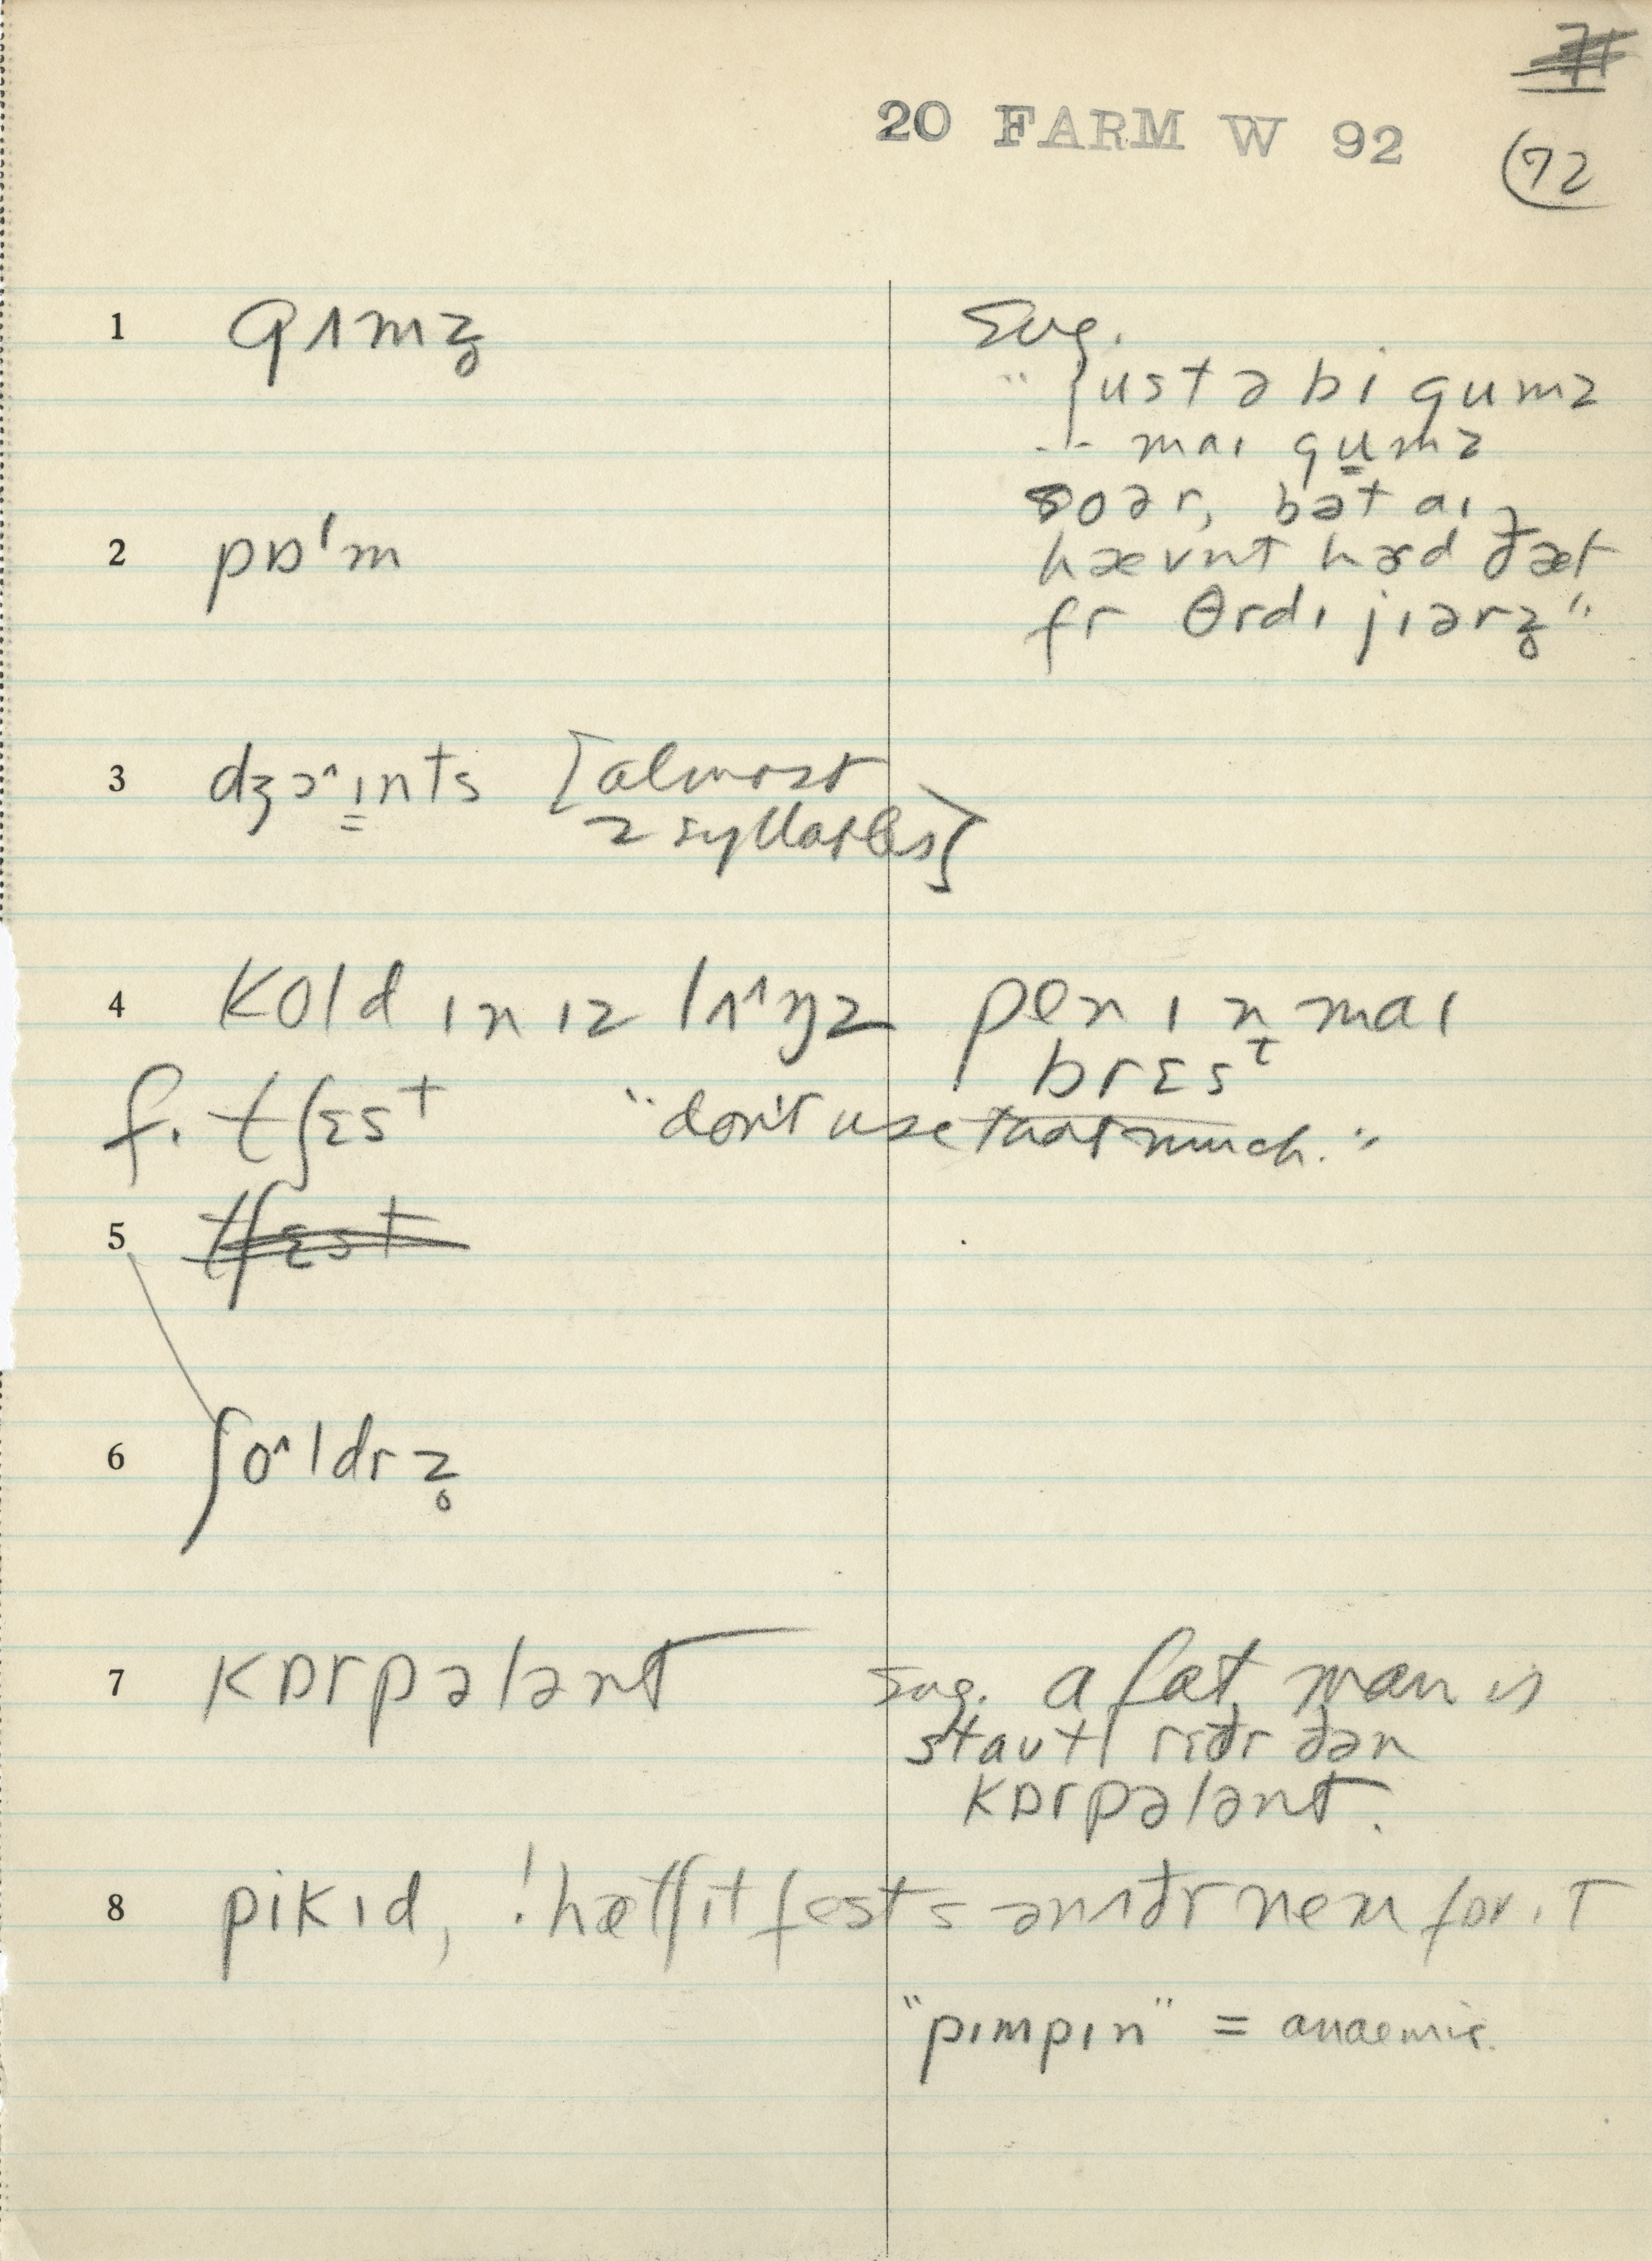 20 FARM W 92
72
1 gʌmz̥ Sug.
"justə bi gumz
-- mai gu̳mz
soər, bət aɪ
hævnt hɝd ðæt
2 pɒ'm
fr θrdɪ jɪərz̥"
3 dʒɔ˄ɪ̳nts [almost
2 syllables]
4 kold ɪn ɪz lʌ˄ŋz pen ɪn mai
brɛsᵗ
f. tʃɛst "don't use that much."
5 tʃɛst
6 ʃo˄ldrz̥
7 kɒrpələnt Sug. a fat man is
staʊt riðr ðən
kɒrpələnt.
8 pikɪd, !hætʃɪt fest s ənʌðr nem for ɪt
"pɪmpɪn" = anaemic.